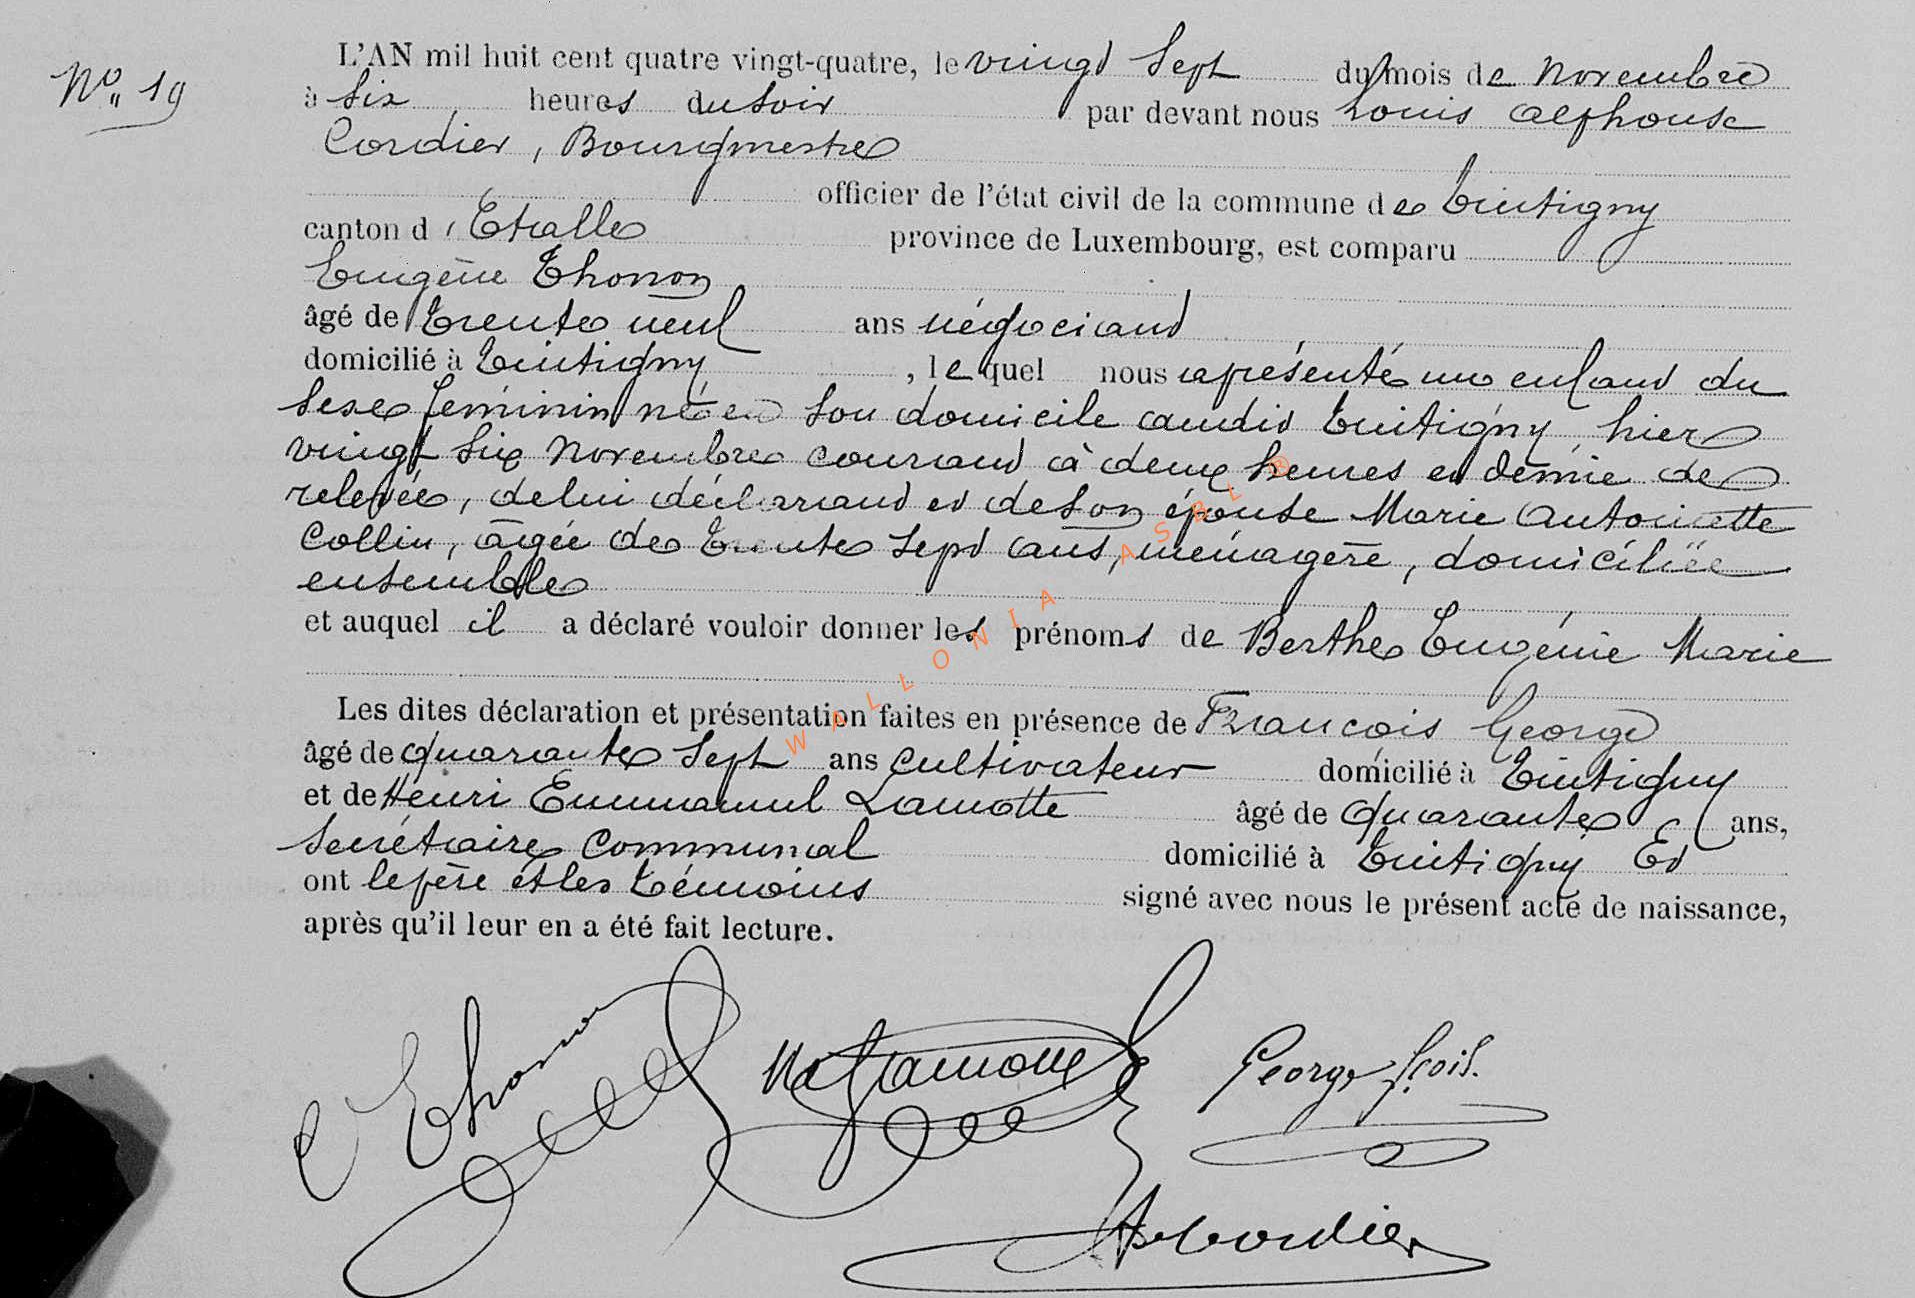 No 19
L'AN mil huit cent quatre vingt-quatre, le vingt Sept du mois de Novembre
à Six heures du Soir par devant nous Louis Alphonse
Cordier, Bourgmestre
officier de l'état civil de la commune de Tintigny
canton d'Etalle province de Luxembourg, est comparu
Eugène Thonon
âgé de Trente neuf ans négociant
domicilié à Tintigny, lequel nous a présenté un enfant du
Sexe féminin né en Son domicile audit Tintigny, hier
vingt Six Novembre courant à deux heures et demie de
relevée, de lui déclarant et de Son épouse Marie Antoinette
Collin, âgée de Trente Sept ans, ménagère, domiciliée
ensemble
et auquel il a déclaré vouloir donner les prénoms de Berthe Eugénie Marie
Les dites déclaration et présentation faites en présence de François George
âgé de quarante Sept ans cultivateur domicilié à Tintigny
et de Henri Emmanuel Lamotte âgé de quarante ans,
Secrétaire Communal domicilié à Tintigny Et
ont le père et les témoins signé avec nous le présent acte de naissance,
après qu'il leur en a été fait lecture.
E Thonon Lamotte George fçois.
A Cordier
WALLONIA ASBL ®